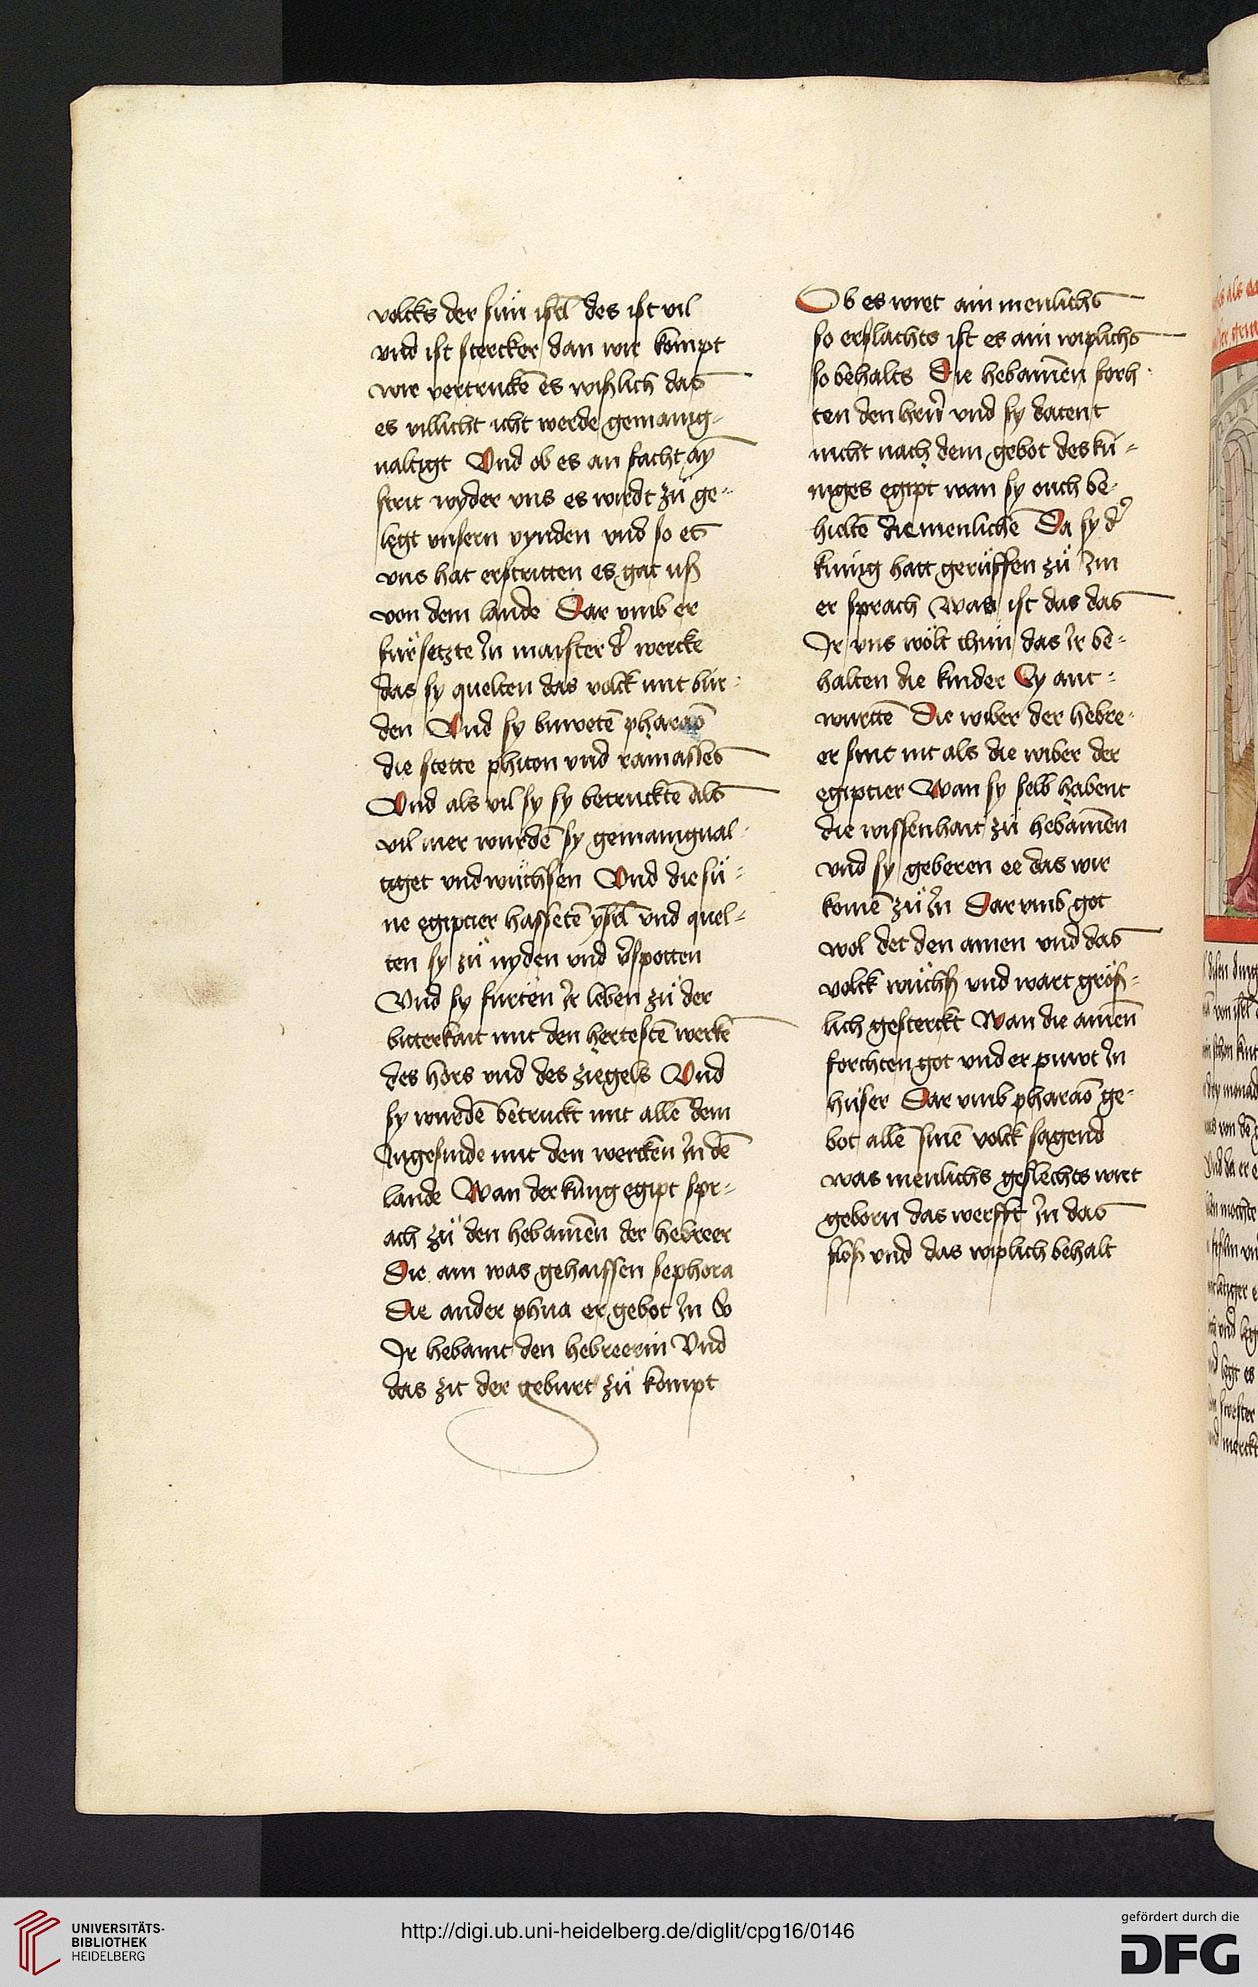 volcks der sün isrl̄ des ist vil
vnd ist stercker dan wir kompt
wir vertrucke͂ es wißlich das
es villicht icht werde gemanig-
ualtigt Vnd ob es an facht ay̅
strit wyder vns es wirdt zů ge-
legt vnsern vynden vnd so es
vns hat erstritten es gat uß
von dem lande Dar vmb er
für setzte In maister d' wercke
das sy quelten das volck mit bür-
den Vnd sy buwete͂ pharao
die stette phiton vnd ramasses
Vnd als vil sy sy betruckte͂ als
vil mer wurde͂ sy gemanigual-
tiget vnd wůchsen Vnd die sü-
ne egiptier hassete͂ ysrl̄ vnd quel-
ten sy zů nyden vnd v'spotten
Vnd sy fürten Ir leben zů der
bitterkait mit den herteste͂ werke͂
des hors vnd des ziegels Vnd
sy wurde͂ betruckt mit alle͂ dem
Ingesinde mit den wercken In de͂
lande Wan der küng egipt spr-
ach zů den hebamen der hebreer
Die ain was gehaissen sephora
Die ander phua er gebot In So
Ir hebamt den hebreerin Vnd
das zit der geburt zů kompt
Ob es wirt ain menlichs
so erslachts ist es ain wiplichs
so behalts Die hebamen forh-
ten den hern vnd sy datent
nicht nach dem gebot des kü-
niges egipt wan sy ouch be-
hielte͂ die menliche͂ Da sy d'
künig hatt gerüffen zů Im
er sprach Was ist das das
Ir vns wölt thun das Ir be-
halten die kinder Sy ant-
wurtte͂ Die wiber der hebre-
er sint nit als die wiber der
egiptier Wan sy selb habent
die wissenhait zů hebamen
vnd sy geberen ee das wir
kome͂ zů In Dar vmb got
wol det den amen vnd das
volck wůchß vnd wart größ-
lich gesterckt Wan die amen
forchten got vnd er puwt In
hüser Dar vmb pharao ge-
bot alle͂ sine͂ volck sagend
was menlichs geslechts wirt
geborn das werfft In das
flöß vnd das wiplich behalt
UNIVERSITÄTS-
BIBLIOTHEK
HEIDELBERG
http://digi.ub.uni-heidelberg.de/diglit/cpg16/0146
gefördert durch die
DFG